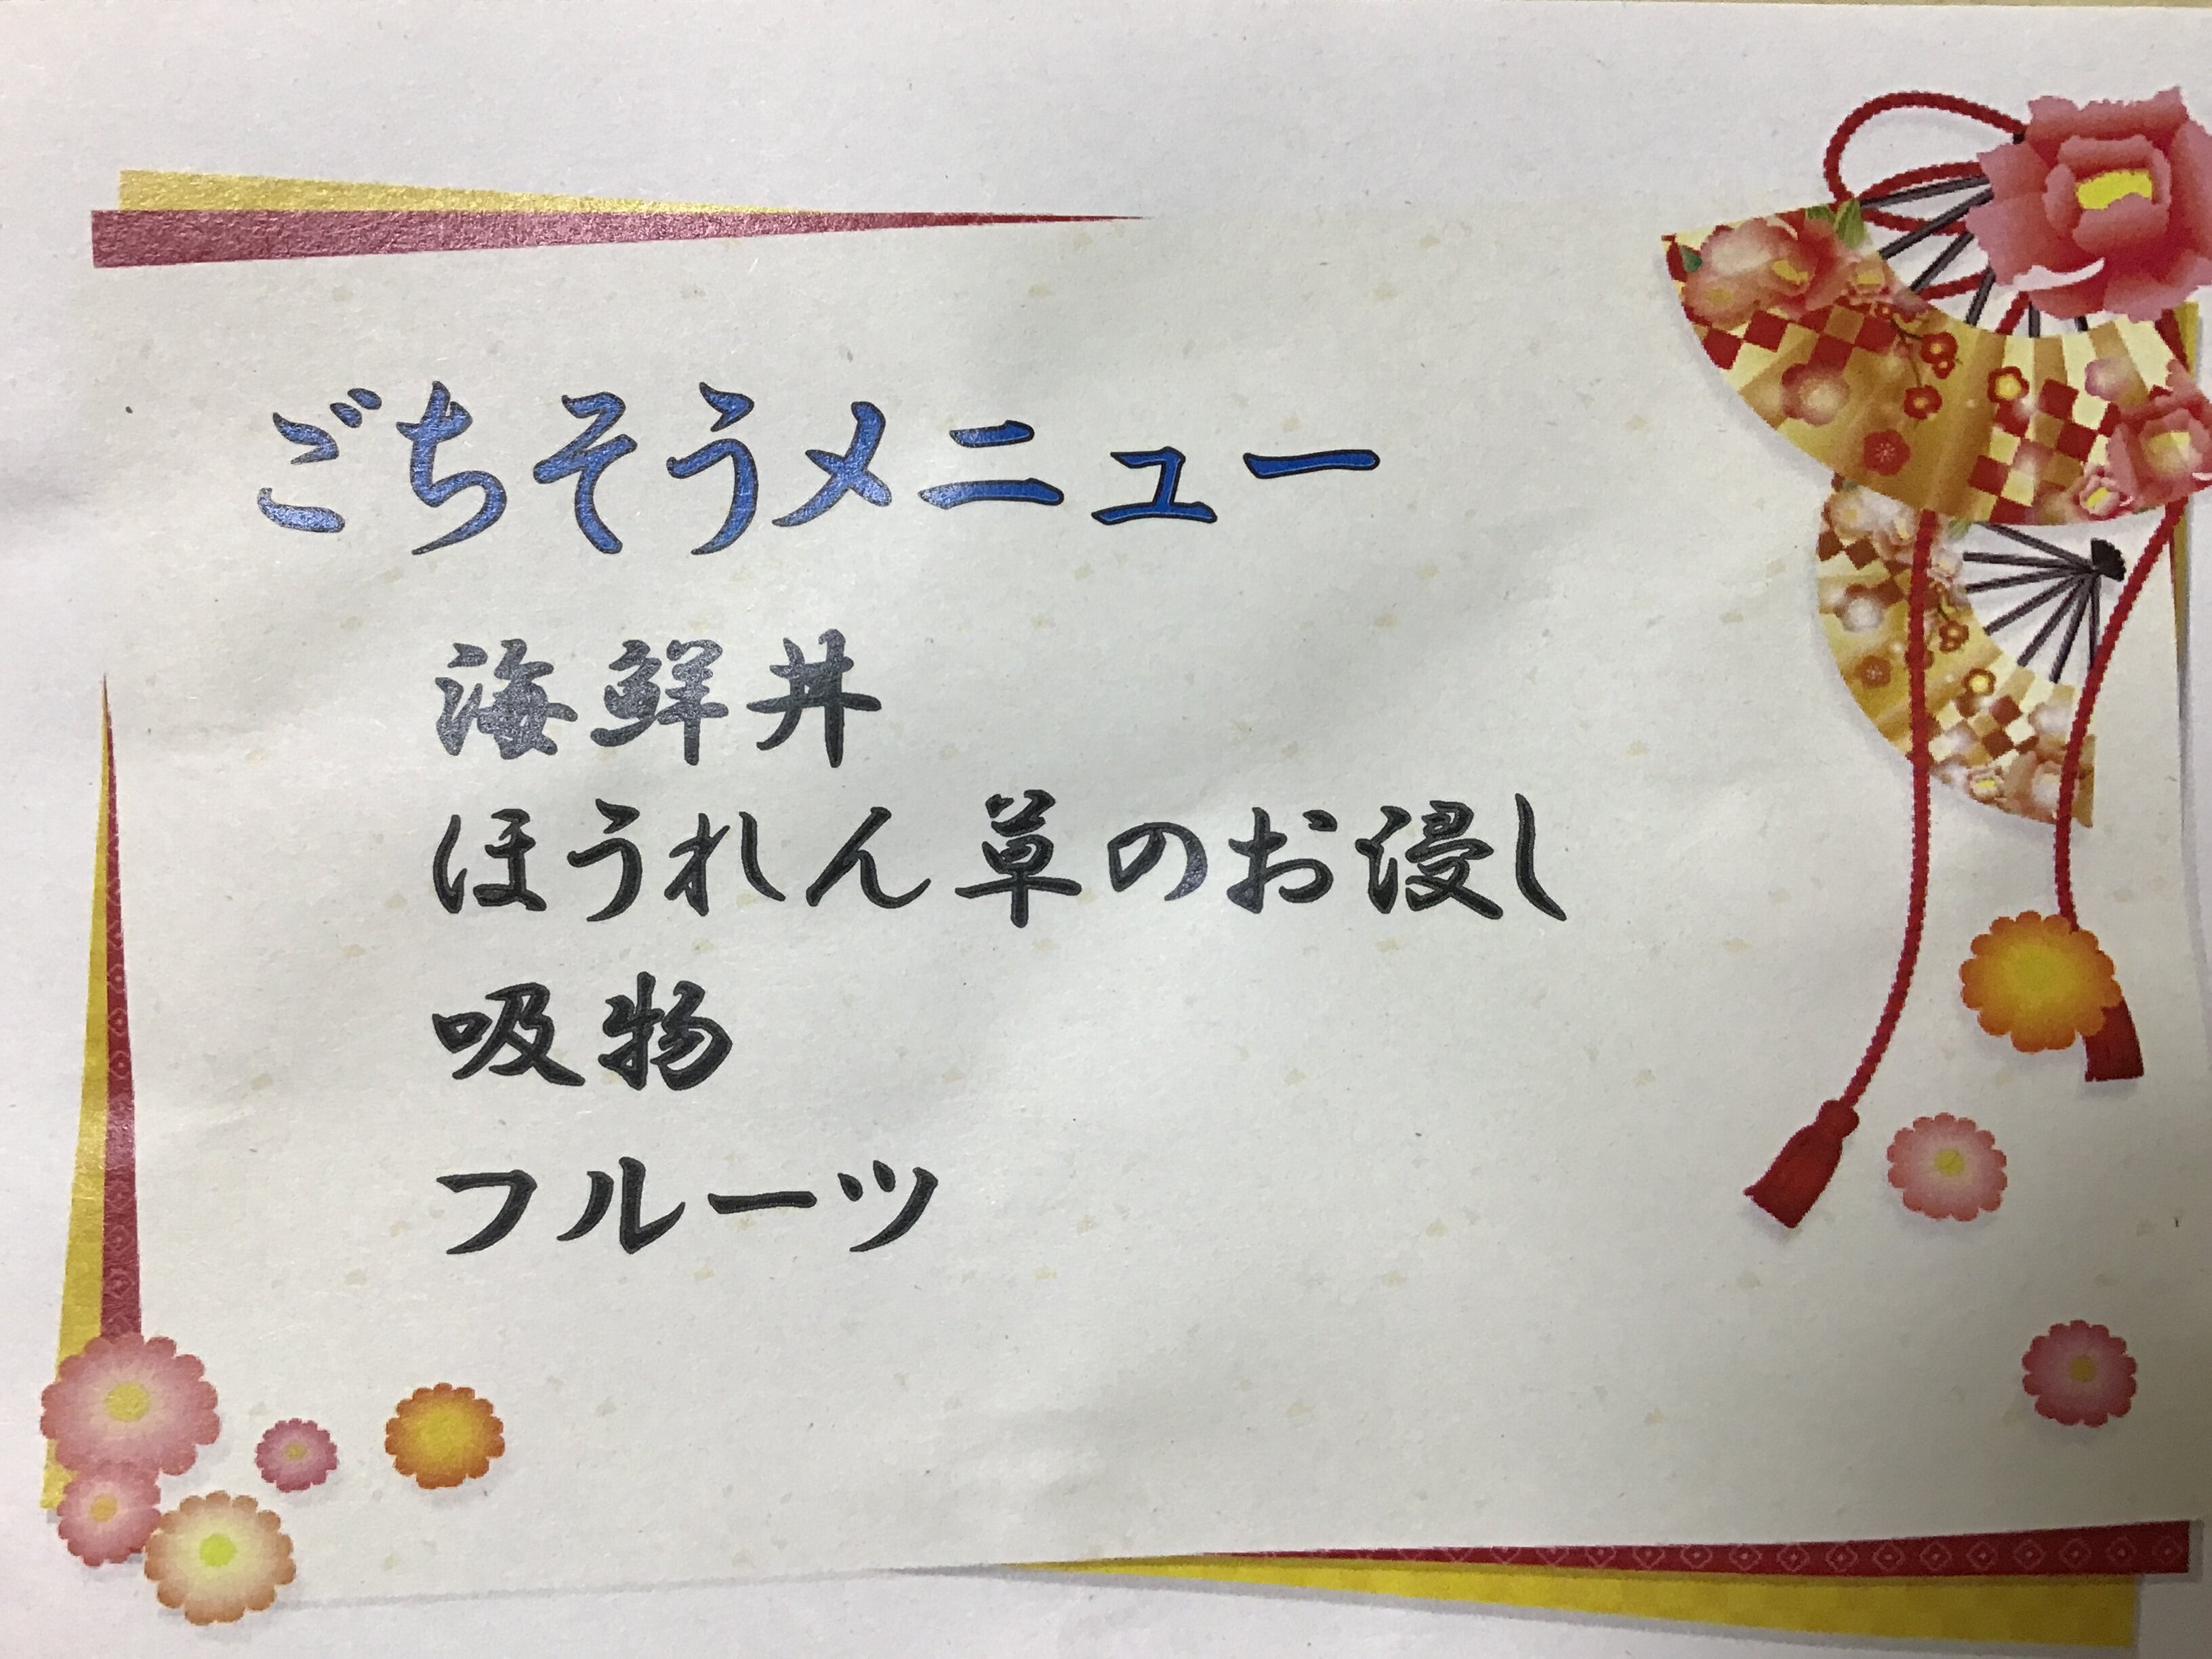 ごちそうメニュー
海鮮丼
ほうれん草のお浸し
吸物
フルーツ